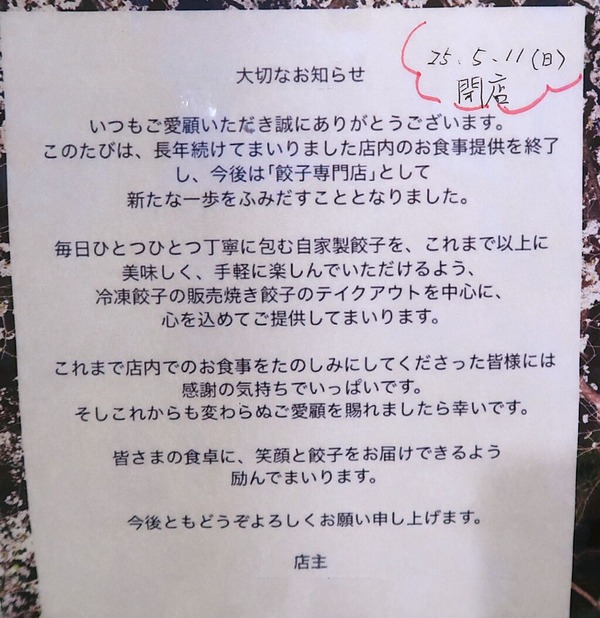 25.5.11(日)
閉店
大切なお知らせ
いつもご愛顧いただき誠にありがとうございます。
このたびは、長年続けてまいりました店内のお食事提供を終了
し、今後は「餃子専門店」として
新たな一歩をふみだすこととなりました。
毎日ひとつひとつ丁寧に包む自家製餃子を、これまで以上に
美味しく、手軽に楽しんでいただけるよう、
冷凍餃子の販売焼き餃子のテイクアウトを中心に、
心を込めてご提供してまいります。
これまで店内でのお食事をたのしみにしてくださった皆様には
感謝の気持ちでいっぱいです。
そしこれからも変わらぬご愛顧を賜れましたら幸いです。
皆さまの食卓に、笑顔と餃子をお届けできるよう
励んでまいります。
今後ともどうぞよろしくお願い申し上げます。
店主